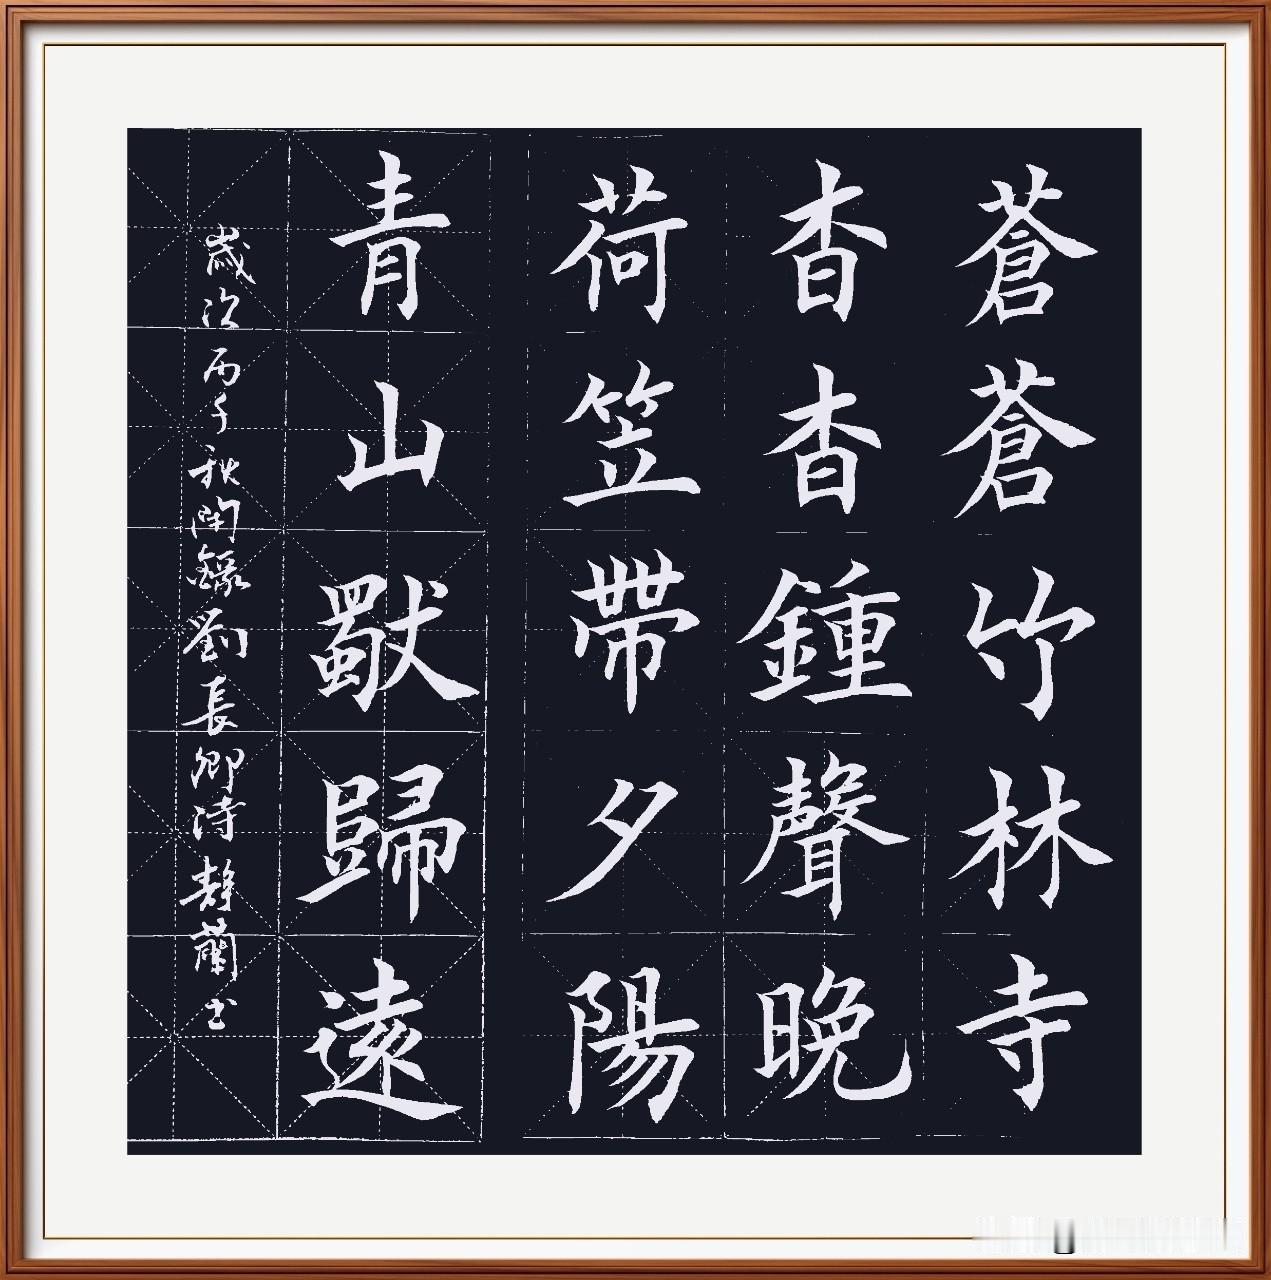 蒼蒼竹林寺
杳杳鍾聲晚
荷笠帶夕陽
青山獨歸遠
歲次丙秋閑錄劉長卿詩靜蘭书